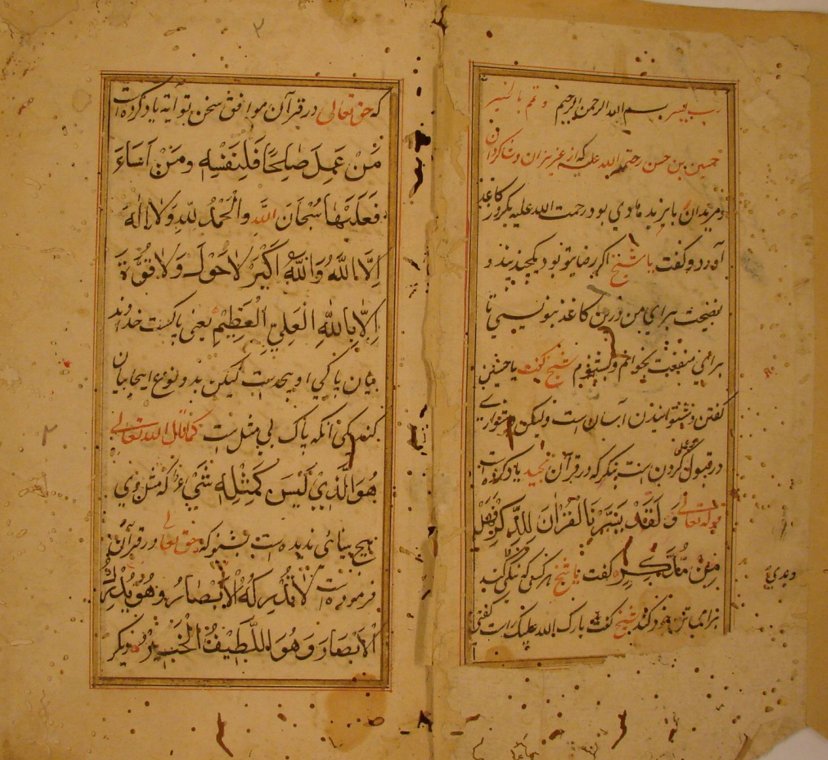 رب یسر بسم الله الرحمن الرحیم و تمم بالخیر
حسین بن حسن رحمة الله علیه که از عزیزان و شاکردان
و مریدان بایزید هادی بود رحمت الله علیه یکروز کاغذ
آورد و کفت یا شیخ اکر رضای تو بود یکچند پند و
نصیحت برای من درین کاغذ بنویسی تا
برای منفعت بخوانم و بشنوم شیخ کفت یا حسین
کفتن و شنوانیدن آسان است ولیکن دشواری
در قبول کردن است بنکر که در قرآن مجید یاد کرده است
قوله تعالی وَلَقَدْ یَسَّرْنَا الْقُرْآنَ لِلذِّکْرِ فَهَلْ
مِنْ مُدَّکِرٍ کفت یا شیخ هر کسی که نیکی کند
برای تن خود کند شیخ کفت بارک الله علیک راست کفتی
که حق تعالی در قرآن موافق سخن تو آیه یاد کرده است
مَنْ عَمِلَ صَالِحًا فَلِنَفْسِهِ وَمَنْ اَسَاءَ
فَعَلَیْهَا سُبْحَانَ اللهِ وَالْحَمْدُ لِلّهِ وَلَا اِلهَ
اِلَّا اللهُ وَاللهُ اَکْبَرُ لَاحَوْلَ وَلَا قُوَّةَ
اِلَّا بِاللهِ الْعَلِیِّ الْعَظِیْمِ یعنی پاکیست خداوند
پاکی او بیحدست لیکن بدو نوع
کنم یکی آنکه پاک بی مثل است کما قال الله تعالی
هُوَ الَّذِیْ لَیْسَ کَمِثْلِهِ شَیْءٌ که مثل وی
هیچ بینائی ندیده است بشنو که حق تعالی در قرآن
فرموده است لَا تُدْرِکُهُ الْاَبْصَارُ وَهُوَ یُدْرِکُ
الْاَبْصَارَ وَهُوَ اللَّطِیْفُ الْخَبِیْرُ دیکر